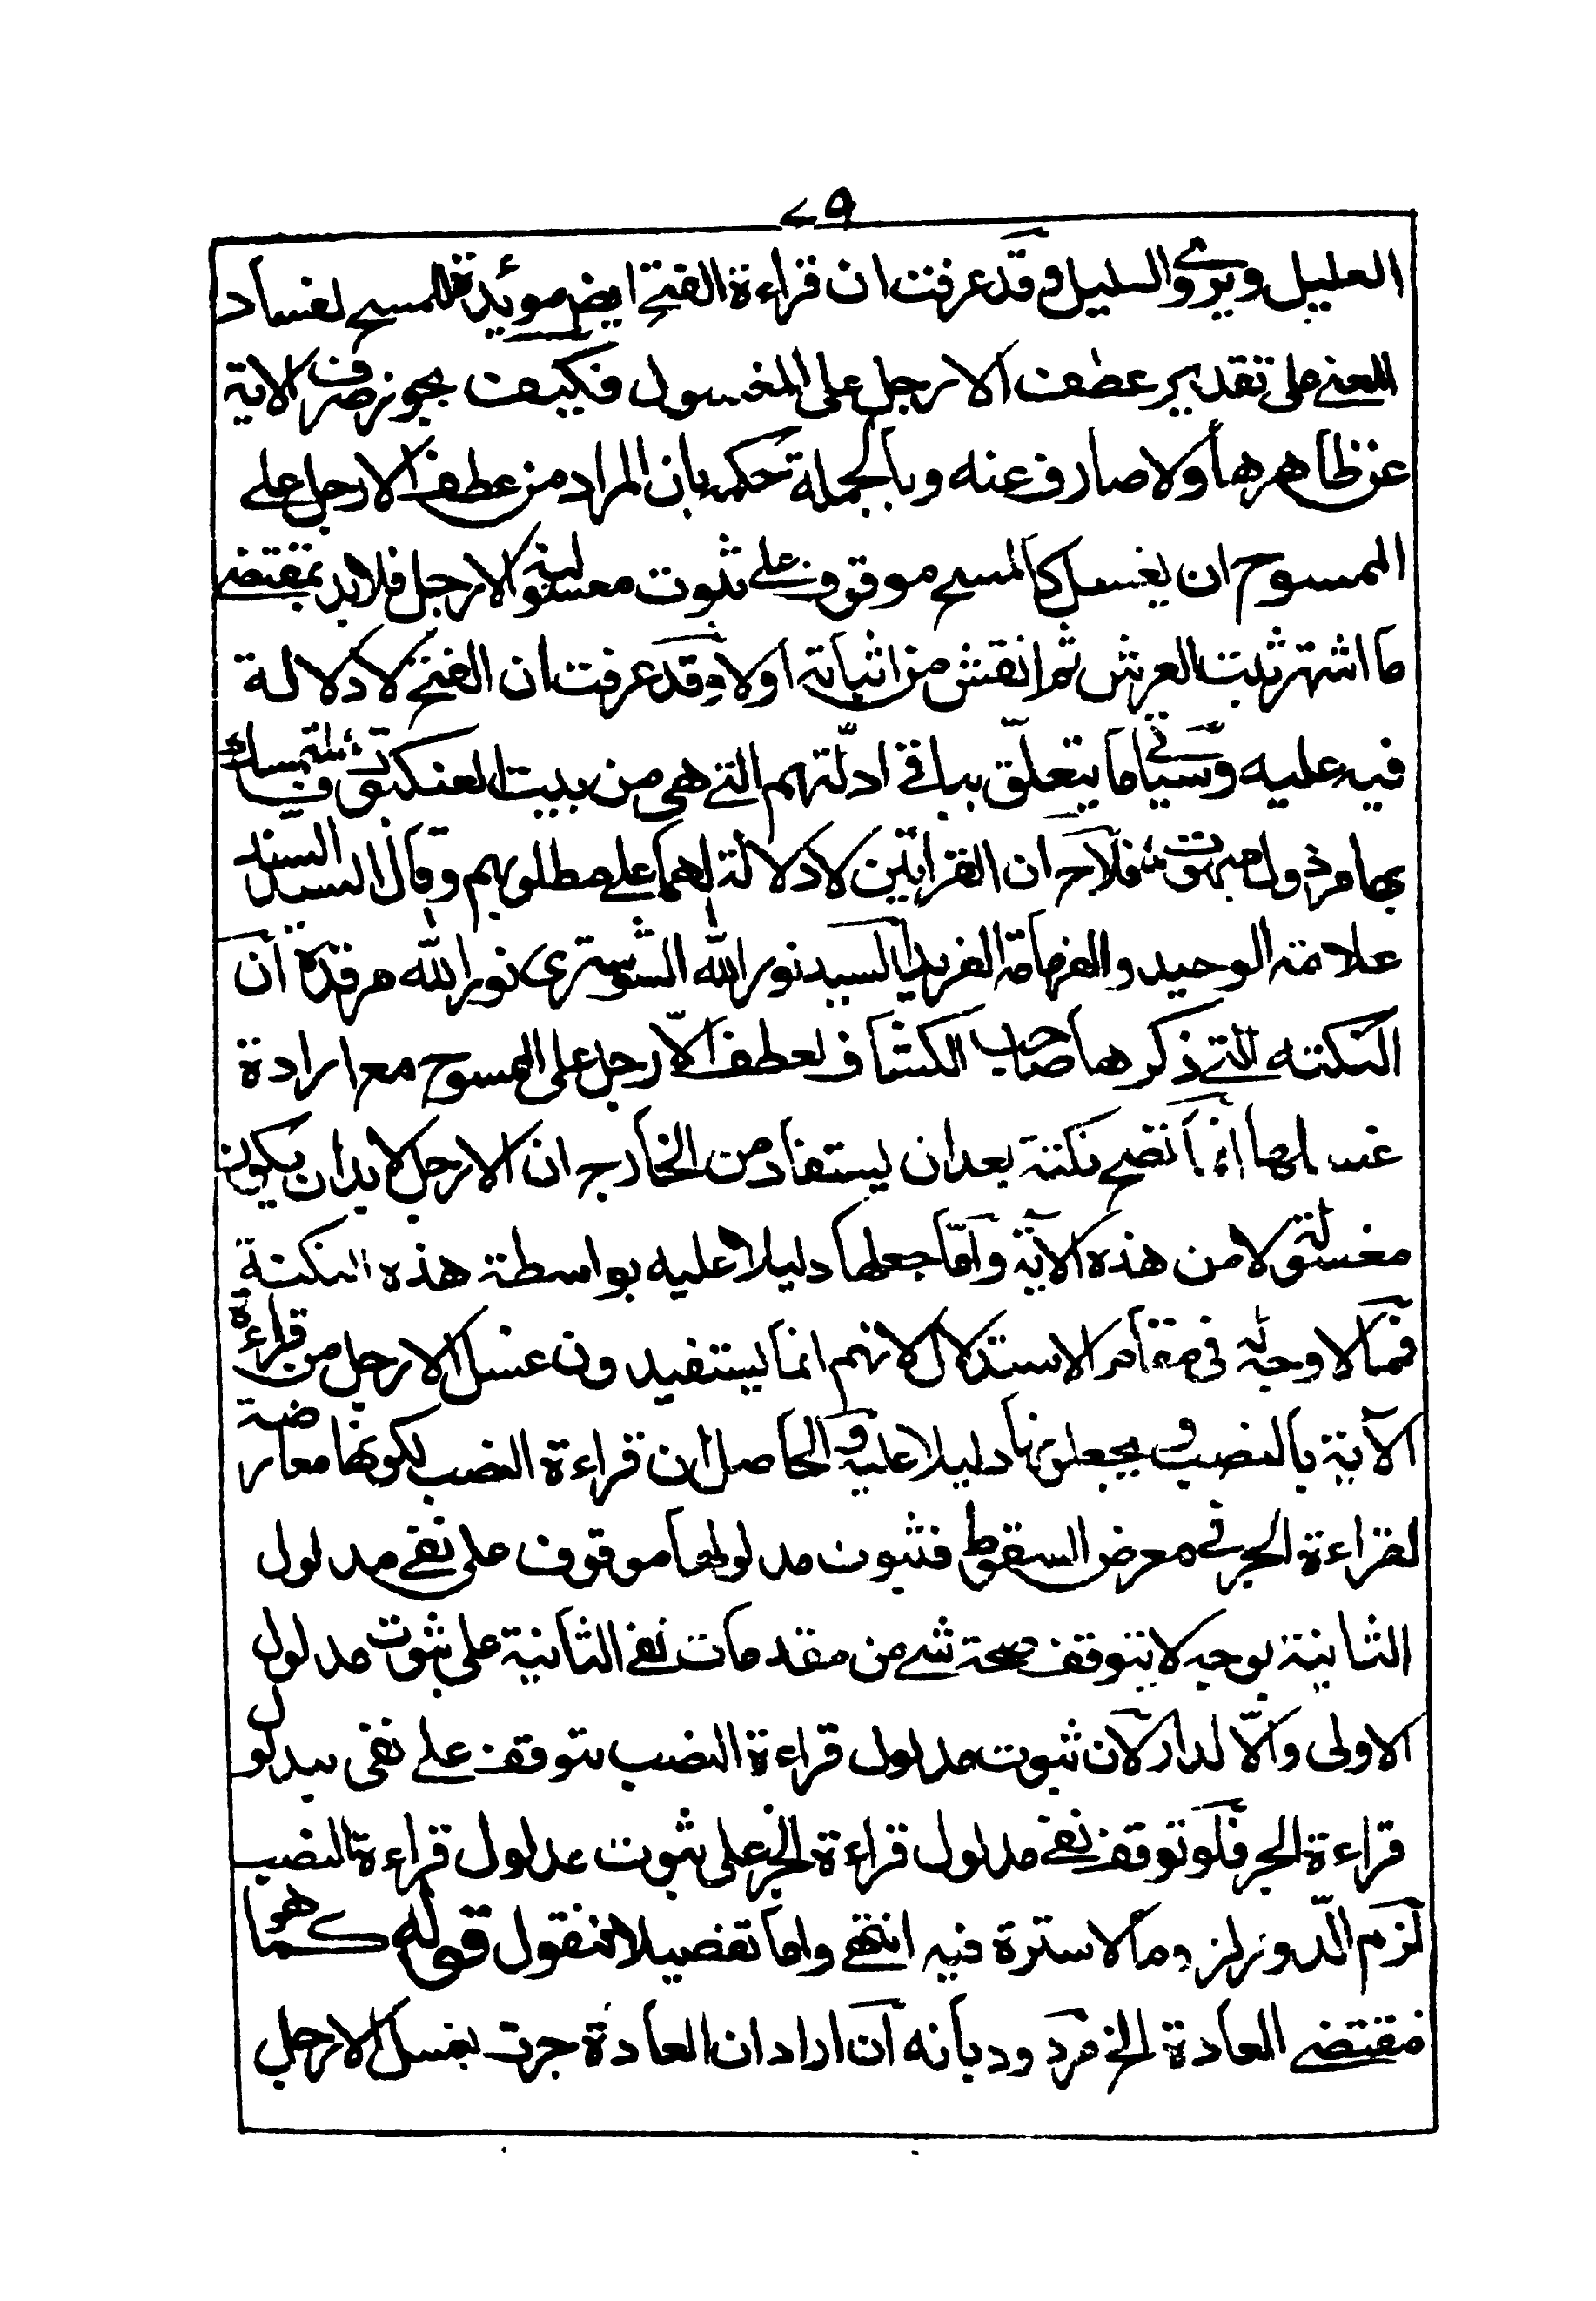 ٧٩
العليل ويروي السليل وقد عرفت ان قراءة الفتح ايض مويدة للمسح لفساد
المعنى على تقدير عطف الارجل على المغسول فكيف يجوز صرف الاية
عن ظاهرها ولا صارف عنه وبالجملة تحكمه بان المراد من عطف الارجل على
الممسوح ان يغسل كالمسح موقوف على ثبوت مغسولية الارجل فلا بد بمقتضى
ما اشتهر ثبت العرش ثم انقش من اثباته اولا وقد عرفت ان الفتح لا دلالة
فيه عليه وسياتي ما يتعلق بباقي ادلتهم التي هي من بيت العنكبوت فالمتمسك
بها مبهوت فلاح ان القرائتين لا دلالة لهما على مطلوبهم وقال السيد السند
علامة الوحيد والفهامة الفريد السيد نور الله الشوسترى نور الله مرقده ان
النكته التي ذكرها صاحب الكشاف لعطف الارجل على الممسوح مع ارادة
غسلها انما تصح نكتة بعد ان يستفاد من الخارج ان الارجل لا بد ان يكون
مغسولة لا من هذه الآية وأمّا جعلها دليلا عليه بواسطة هذه النكتة
فمما لا وجه له في مقام الاستدلال لانهم انما يستفيدون غسل الارجل من قراءة
الآية بالنصب ويجعلونها دليلا عليه والحاصل ان قراءة النصب لكونها معارضة
لقراءة الجر في معرض السقوط فثبوت مدلولها موقوف على نفي مدلول
الثانية بوجه لا يتوقف صحة شے من مقدمات نفي الثانية على ثبوت مدلول
الاولى والّا لدار لان ثبوت مدلول قراءة النصب يتوقف على نفى مدلول
قراءة الجر فلو توقف نفي مدلول قراءة الجر على ثبوت مدلول قراءة النصب
لزم الدور لزوما لا سترة فيه انتهى واما تفصيلا فنقول قوله كما هو
مقتضى العادة الخ مردود بانه ان اراد ان العادة جرت بغسل الارجل